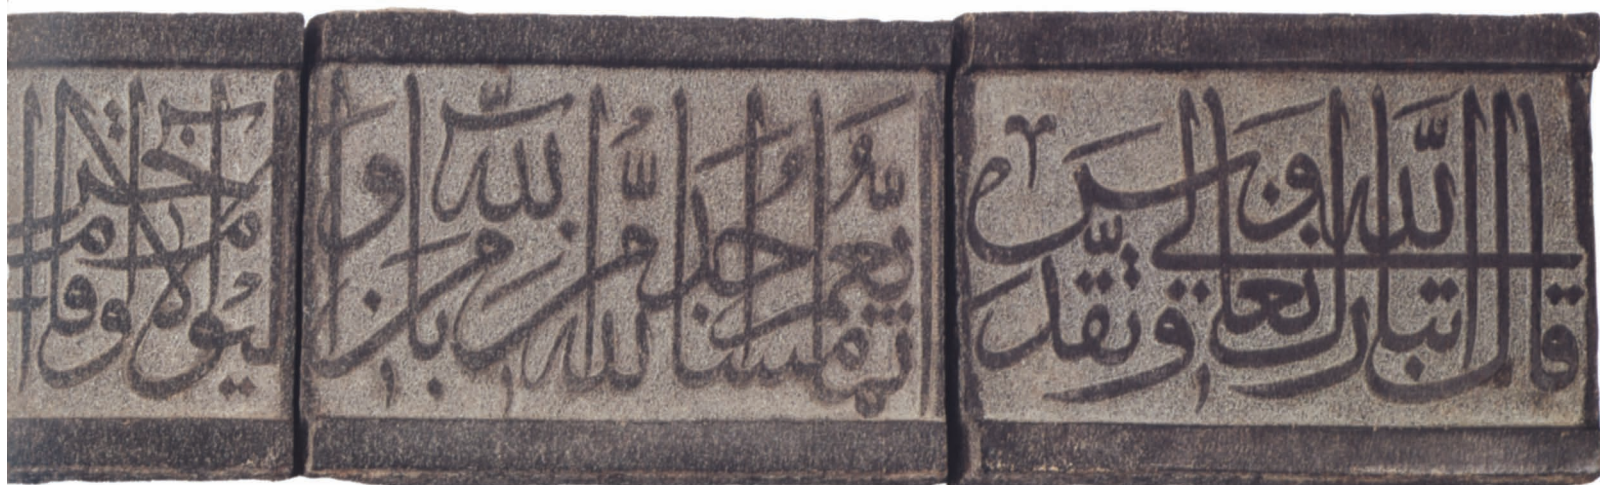 قال الله تبارك وتعالى وتقدس
انما يعمر مساجد الله من آمن بالله واليوم الآخر واقام